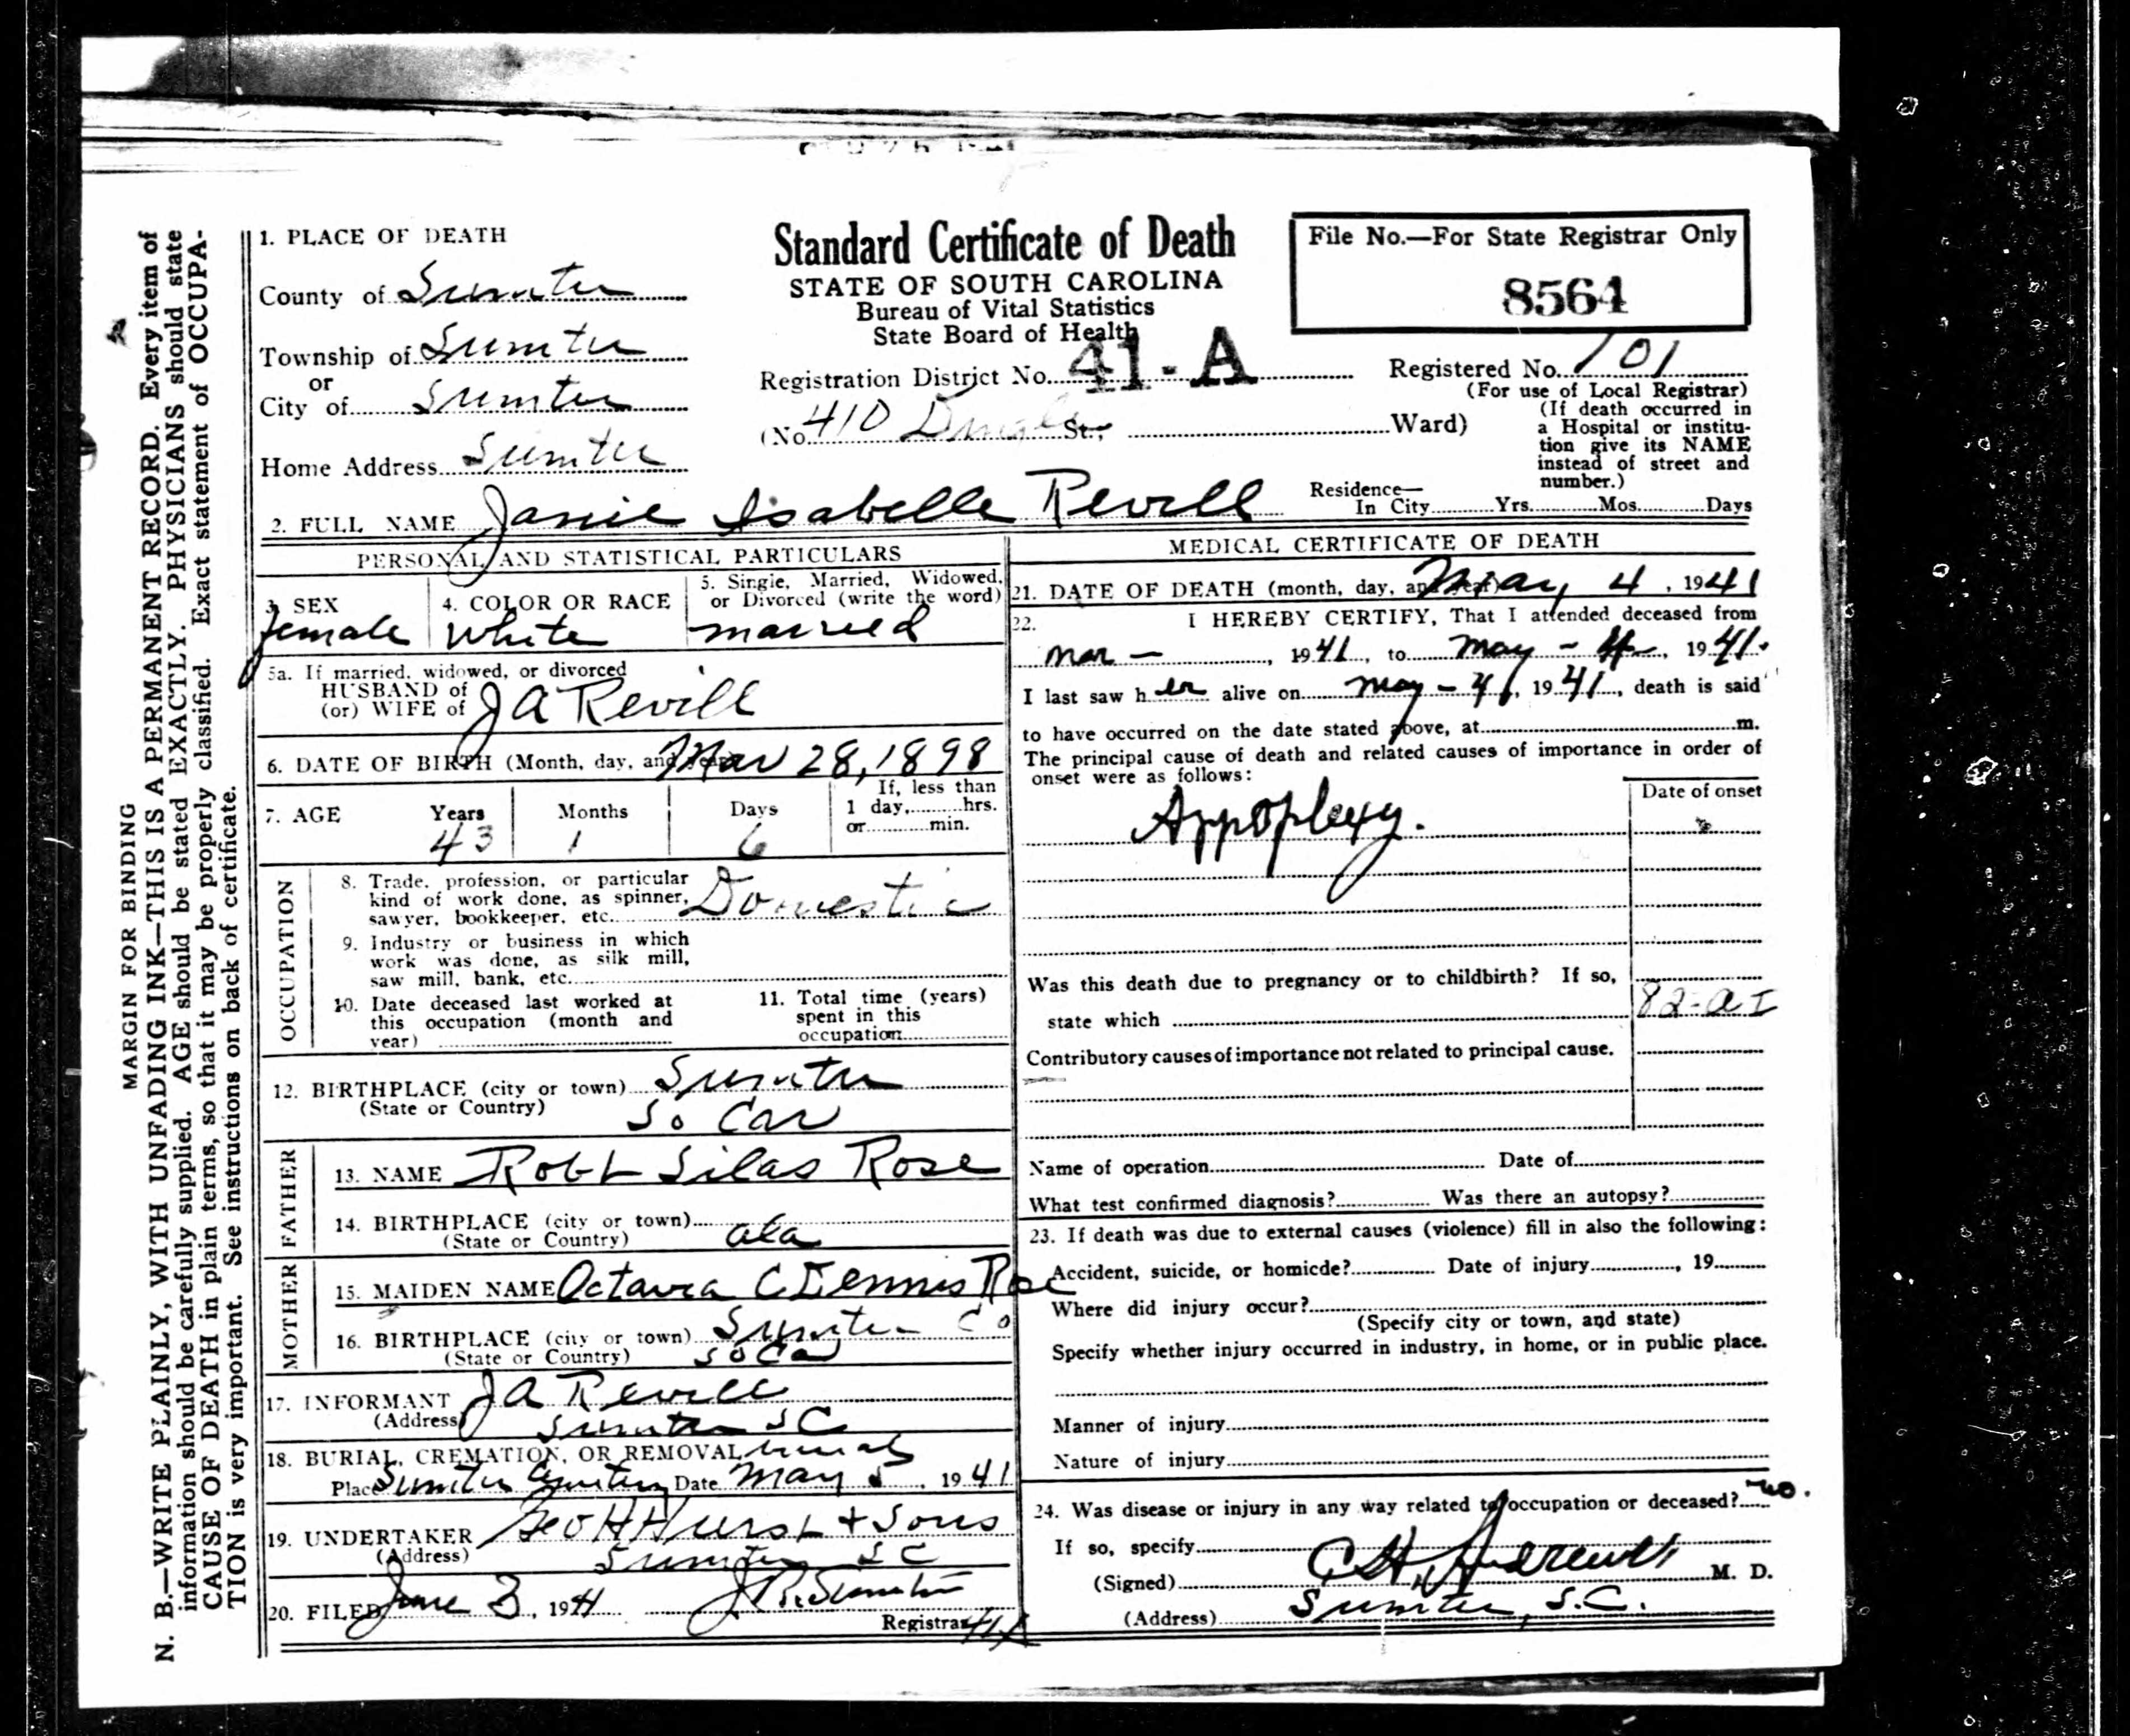 MARGIN FOR BINDING
N. B.—WRITE PLAINLY, WITH UNFADING INK—THIS IS A PERMANENT RECORD. Every item of
information should be carefully supplied. AGE should be stated EXACTLY. PHYSICIANS should state
CAUSE OF DEATH in plain terms, so that it may be properly classified. Exact statement of OCCUPA-
TION is very important. See instructions on back of certificate.
Standard Certificate of Death
STATE OF SOUTH CAROLINA
Bureau of Vital Statistics
State Board of Health
File No.—For State Registrar Only
8564
1. PLACE OF DEATH
County of Sumter
Township of Sumter
or
City of Sumter
Home Address Sumter
Registration District No. 41-A
(No. 410 St., Ward)
Registered No. 101
(For use of Local Registrar)
(If death occurred in
a Hospital or institu-
tion give its NAME
instead of street and
number.)
2. FULL NAME Janie Isabelle Revill
Residence—
In City Yrs. Mos. Days
PERSONAL AND STATISTICAL PARTICULARS
3. SEX
female
4. COLOR OR RACE
White
5. Single, Married, Widowed,
or Divorced (write the word)
married
5a. If married, widowed, or divorced
HUSBAND of
(or) WIFE of J A Revill
6. DATE OF BIRTH (Month, day, and year) Mar 28, 1898
7. AGE Years Months Days
43 1 6
If, less than
1 day, hrs.
or min.
OCCUPATION
8. Trade, profession, or particular
kind of work done, as spinner,
sawyer, bookkeeper, etc. Domestic
9. Industry or business in which
work was done, as silk mill,
saw mill, bank, etc.
10. Date deceased last worked at
this occupation (month and
year)
11. Total time (years)
spent in this
occupation
12. BIRTHPLACE (city or town) Sumter
(State or Country) So Car
FATHER
13. NAME Robt Silas Rose
14. BIRTHPLACE (city or town)
(State or Country) ala
MOTHER
15. MAIDEN NAME Octavia C Dennis Rose
16. BIRTHPLACE (city or town) Sumter Co
(State or Country) So Ca
17. INFORMANT J A Revill
(Address) Sumter S C
18. BURIAL, CREMATION, OR REMOVAL burial
Place Sumter Cemetery Date May 5, 1941
19. UNDERTAKER Geo H Hurst + Sons
(Address) Sumter S C
20. FILED June 3, 1941
Registrar 41A
MEDICAL CERTIFICATE OF DEATH
21. DATE OF DEATH (month, day, and year) May 4, 1941
22. I HEREBY CERTIFY, That I attended deceased from
mar —, 1941, to may - 4, 1941.
I last saw her alive on may - 4, 1941, death is said
to have occurred on the date stated above, at m.
The principal cause of death and related causes of importance in order of
onset were as follows:
Date of onset
Appoplexy.
Was this death due to pregnancy or to childbirth? If so,
state which
82-a I
Contributory causes of importance not related to principal cause.
Name of operation Date of
What test confirmed diagnosis? Was there an autopsy?
23. If death was due to external causes (violence) fill in also the following:
Accident, suicide, or homicde? Date of injury, 19
Where did injury occur?
(Specify city or town, and state)
Specify whether injury occurred in industry, in home, or in public place.
Manner of injury
Nature of injury
24. Was disease or injury in any way related to occupation or deceased? no.
If so, specify
(Signed) C H Andrews M. D.
(Address) Sumter, S.C.